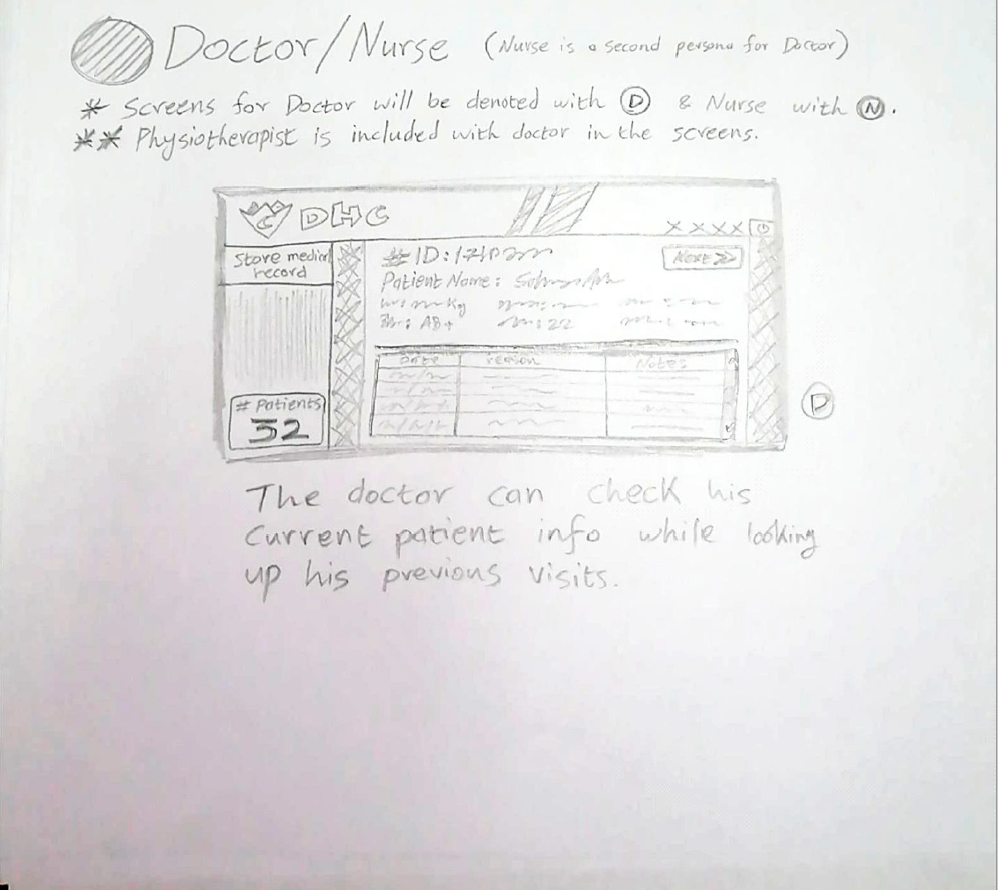 Doctor/Nurse (Nurse is a second persona for Doctor)
* Screens for Doctor will be denoted with D & Nurse with N.
** Physiotherapist is included with doctor in the screens.
DHC
X X X X
Store medical
record
# ID:
NEXT >>
Patient Name:
Kg
: AB+
: 22
Date reason Notes
# Patients
32
D
The doctor can check his
current patient info while looking
up his previous visits.